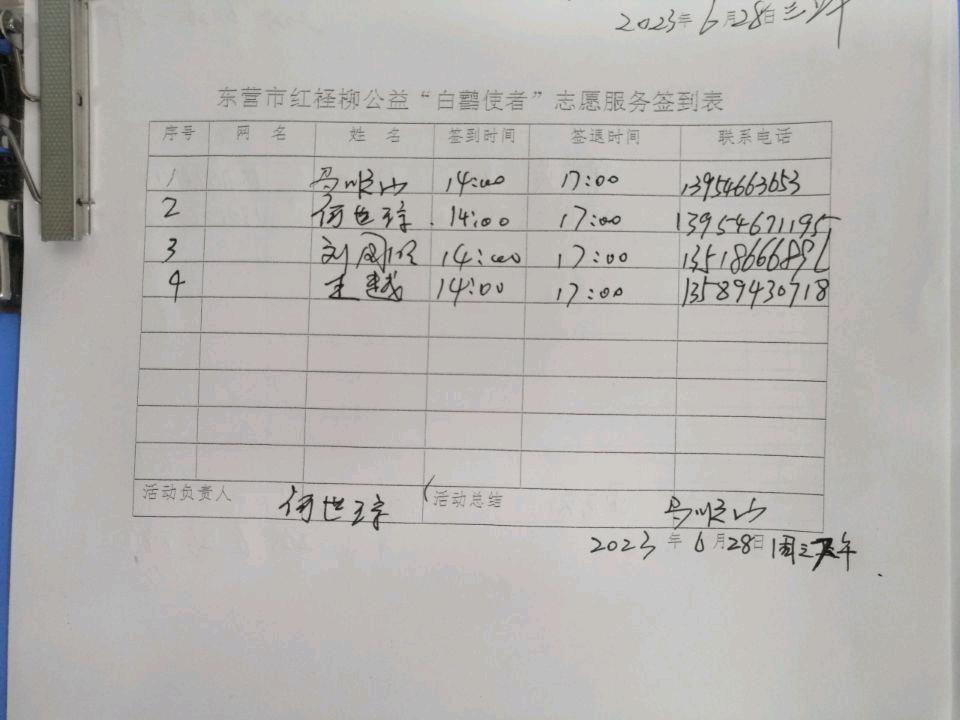 2023年6月28日
东营市红柽柳公益“白鹳使者”志愿服务签到表
序号 网 名 姓 名 签到时间 签退时间 联系电话
1 马顺山 14:00 17:00 13954663653
2 何世琼 14:00 17:00 13954671195
3 刘国 14:00 17:00 1351866689
4 王越 14:00 17:00 13589430718
活动负责人 何世琼 活动总结 马顺山
2023年6月28日周三下午